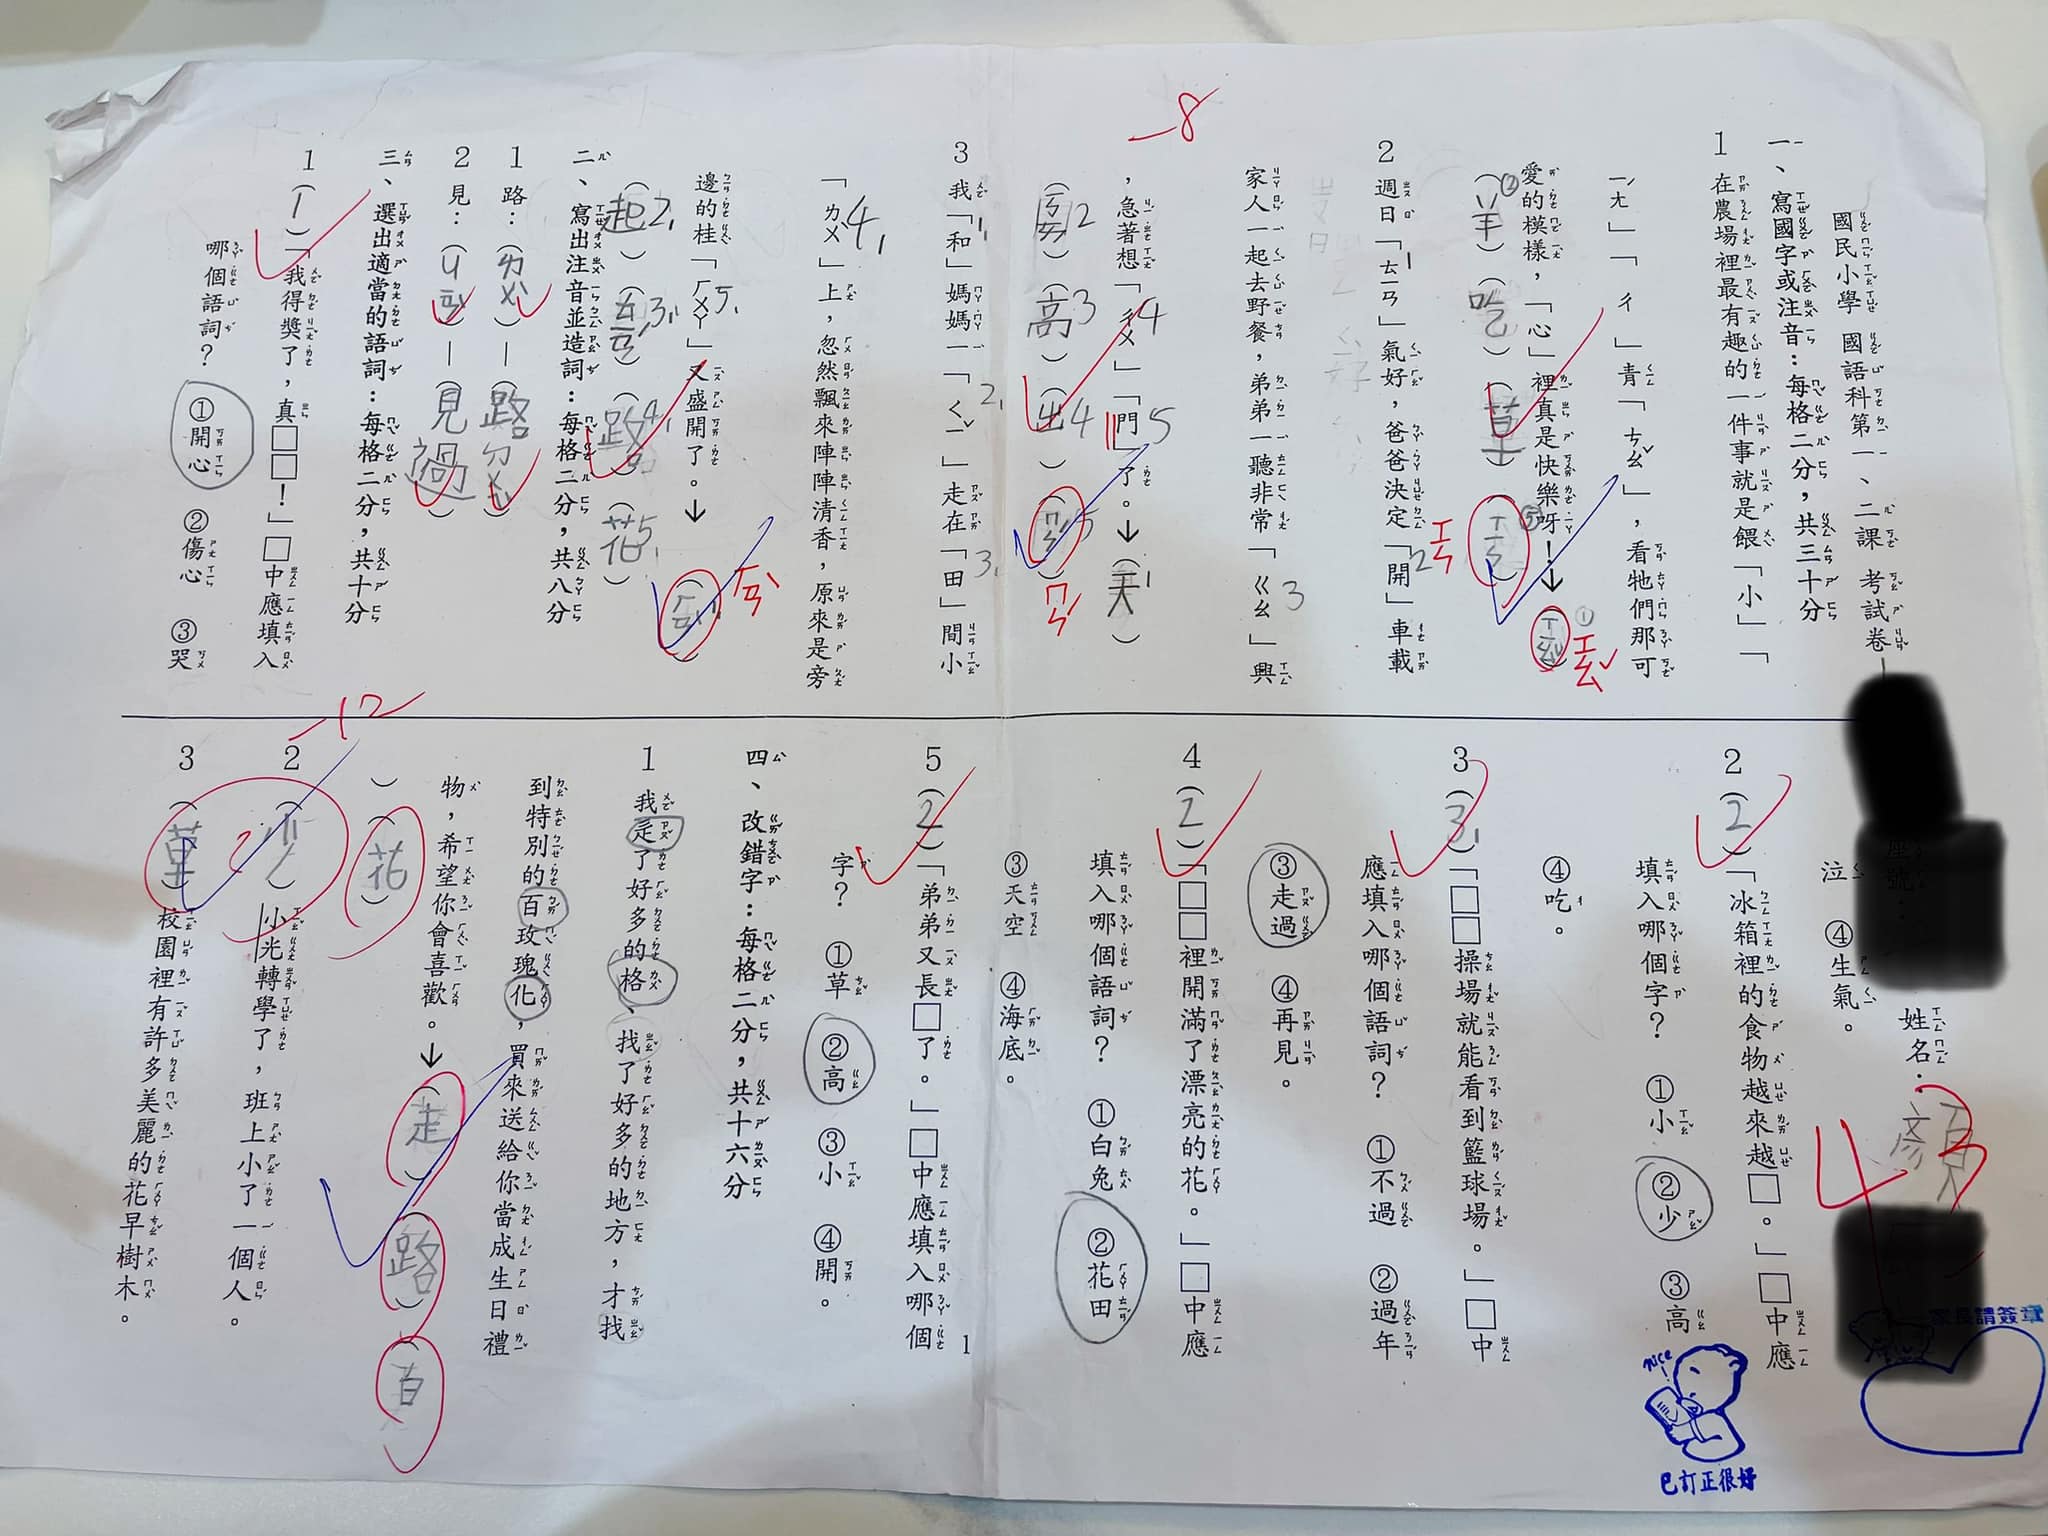 國民小學 國語科第一、二課 考試卷
姓名：顏
43
一、寫國字或注音：每格二分，共三十分
1 在農場裡最有趣的一件事就是餵「小」「
ㄧㄤˊ」「ㄔ」青「ㄘㄠˇ」，看牠們那可
愛的模樣，「心」裡真是快樂呀！↓（ㄒㄧㄠˇ）
（羊）（吃）（草）（ㄒㄧㄣ）
2 週日「ㄊㄧㄢ」氣好，爸爸決定「開」車載
家人一起去野餐，弟弟一聽非常「ㄍㄠ」興
，急著想「ㄔㄨ」「門」了。↓（天）
（ㄎㄞ）（高）（出）（ㄇㄣˊ）
-8
3 我「和」媽媽一「ㄑㄧˇ」走在「田」間小
「ㄌㄨˋ」上，忽然飄來陣陣清香，原來是旁
邊的桂「ㄏㄨㄚ」又盛開了。↓（ㄏㄢˋ）
（起）（ㄊㄧㄢˊ）（路）（花）
二、寫出注音並造詞：每格二分，共八分
1 路：（ㄌㄨˋ）—（路ㄉㄨㄟˋ）
2 見：（ㄐㄧㄢˋ）—（見過）
三、選出適當的語詞：每格二分，共十分
1（1）「我得獎了，真□□！」□中應填入
哪個語詞？ ①開心 ②傷心 ③哭
泣 ④生氣。
2（2）「冰箱裡的食物越來越□。」□中應
填入哪個字？ ①小 ②少 ③高
④吃。
3（3）「□□操場就能看到籃球場。」□中
應填入哪個語詞？ ①不過 ②過年
③走過 ④再見。
4（2）「□□裡開滿了漂亮的花。」□中應
填入哪個語詞？ ①白兔 ②花田
③天空 ④海底。
5（2）「弟弟又長□了。」□中應填入哪個
字？ ①草 ②高 ③小 ④開。
四、改錯字：每格二分，共十六分
1 我走了好多的格、找了好多的地方，才找
到特別的百玫瑰化，買來送給你當成生日禮
物，希望你會喜歡。↓（走）（路）（白
）（花）
-12
2（少）小光轉學了，班上小了一個人。
3（草）校園裡有許多美麗的花早樹木。
1
家長請簽章
nice!
已訂正很好